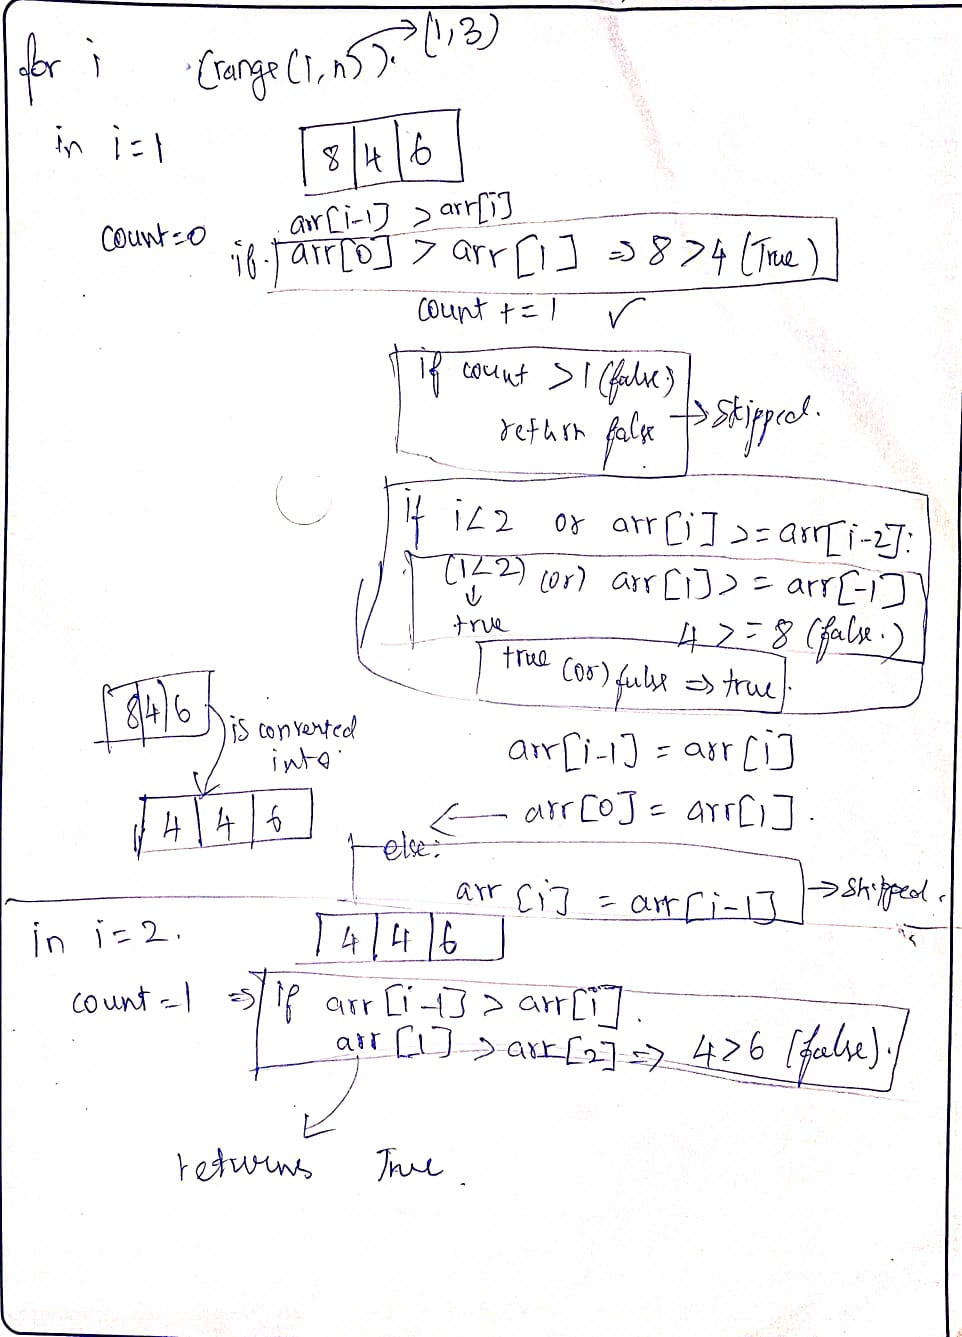 for i (range(1,n)). → (1,3)
in i=1
8 4 6
arr[i-1] > arr[i]
count=0 if arr[0] > arr[1] ⇒ 8>4 (True)
count += 1 ✓
if count >1 (false)
return false → skipped.
if i<2 or arr[i] >= arr[i-2]:
(1<2) (or) arr[1] >= arr[-1]
↓
true 4 >= 8 (false.)
true (or) false ⇒ true.
8 4 6
is converted
into
arr[i-1] = arr[i]
4 4 6 ← arr[0] = arr[1].
else:
arr[i] = arr[i-1] → skipped.
in i=2. 4 4 6
count=1 ⇒ if arr[i-1] > arr[i].
arr[1] > arr[2] ⇒ 4>6 (false).
returns True.